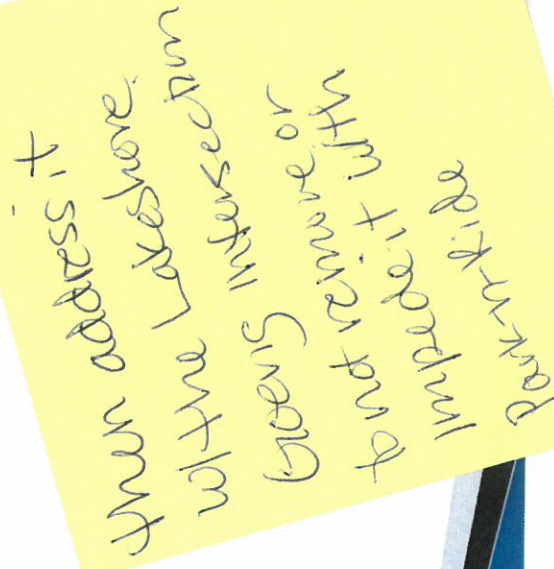 then address it
w/the Lakeshore
Goens Intersectin
but not remove or
Impede it with
Park-n-Ride